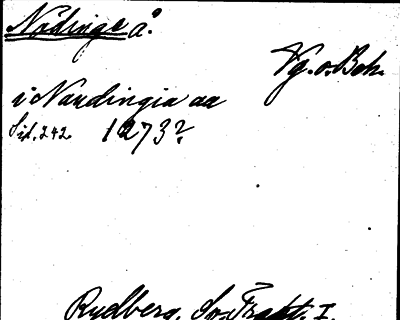 Nödinge å.
Vg. o. Boh.
i Naudingia aa
Sid. 242. 1273?
Rydberg, Sv. Trakt. I.